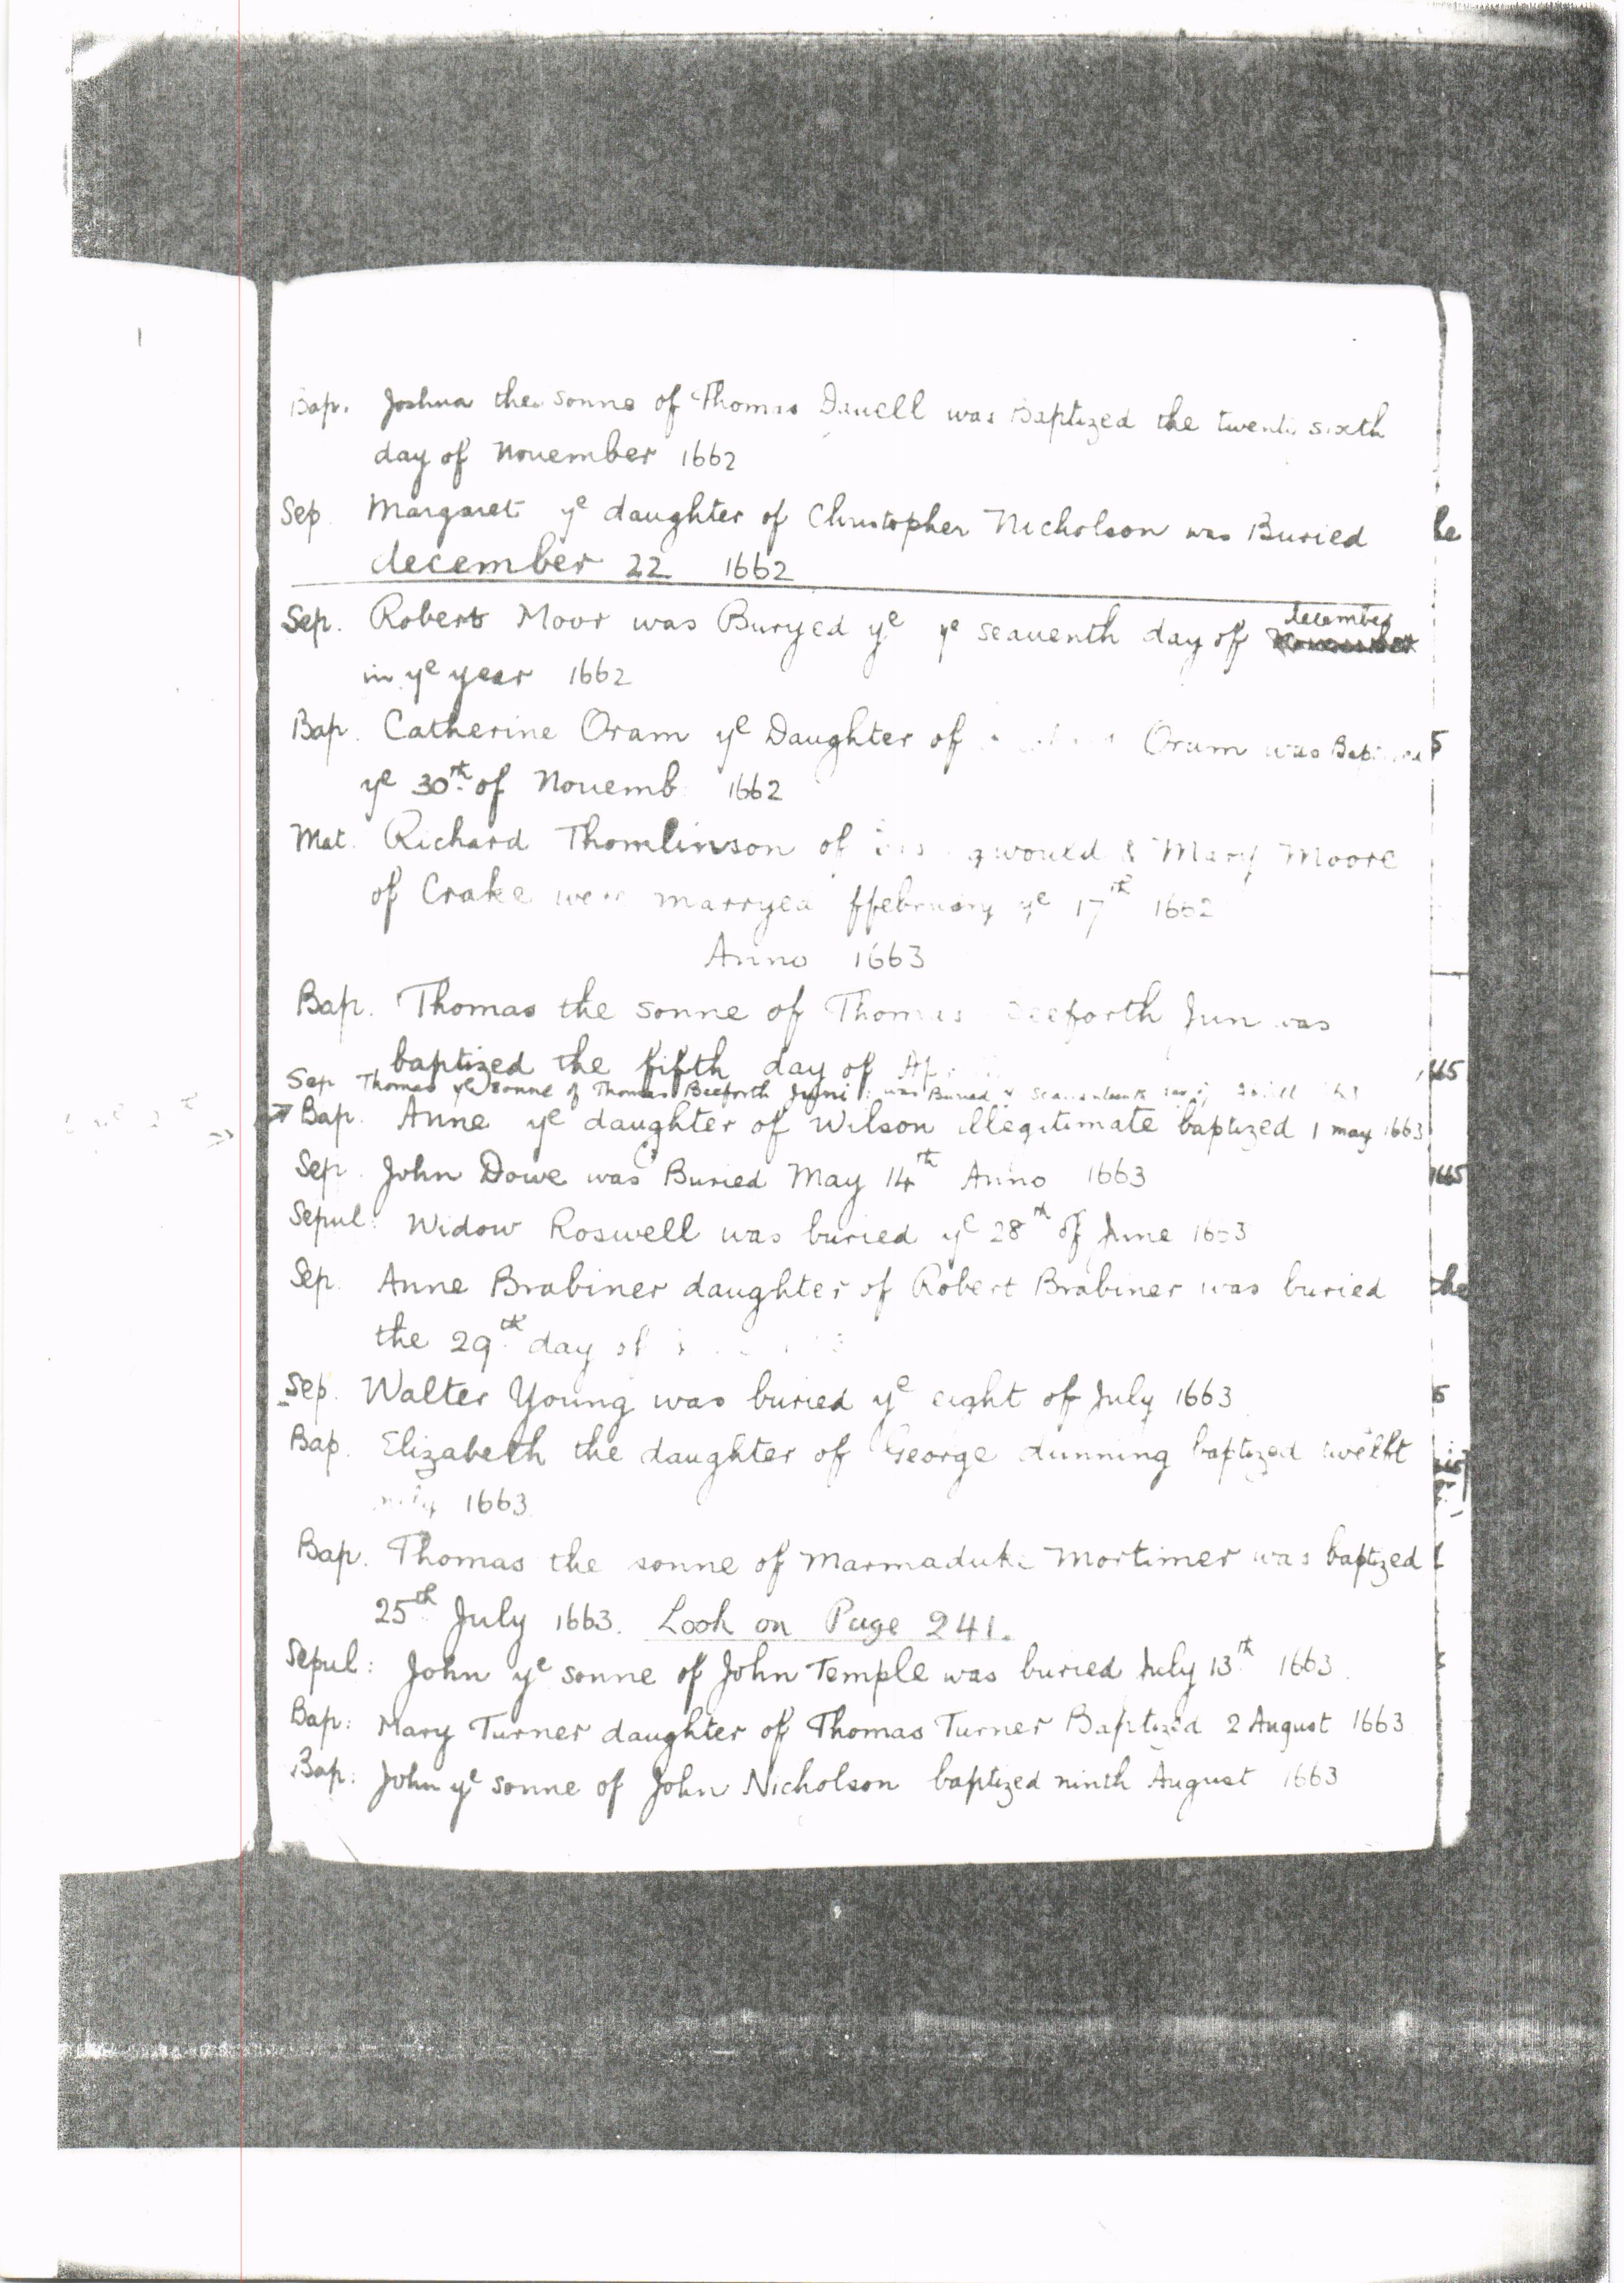 Bap. Joshua the sonne of Thomas Dauell was Baptized the twenti sixth
day of November 1662
Sep. Margaret ye daughter of Christopher Nicholson was Buried
december 22 1662
Sep. Robert Moor was Buryed ye ye seauenth day of december
in ye year 1662
Bap. Catherine Oram ye Daughter of Oram was
ye 30th of Nouemb: 1662
Mat. Richard Thomlinson of & Mary Moore
of Crake were marryed ffebruary ye 17th 1662
Anno 1663
Bap. Thomas the sonne of Thomas Beeforth Jun was
baptized the fifth day of
Sep Thomas ye sonne of Thomas Beeforth Juni: was Buried
Bap. Anne ye daughter of Wilson illegitimate baptized 1 may 1663
Sep. John Dowe was Buried May 14th Anno 1663
Sepul: Widow Roswell was buried ye 28th of June 1663
Sep. Anne Brabiner daughter of Robert Brabiner was buried
the 29th day of
Sep. Walter Young was buried ye eight of July 1663
Bap. Elizabeth the daughter of George dunning baptized twelft
1663
Bap. Thomas the sonne of Marmaduke Mortimer was baptized
25th July 1663. Look on Page 241.
Sepul: John ye sonne of John Temple was buried July 13th 1663.
Bap: Mary Turner daughter of Thomas Turner Baptized 2 August 1663
Bap: John ye sonne of John Nicholson baptized ninth August 1663